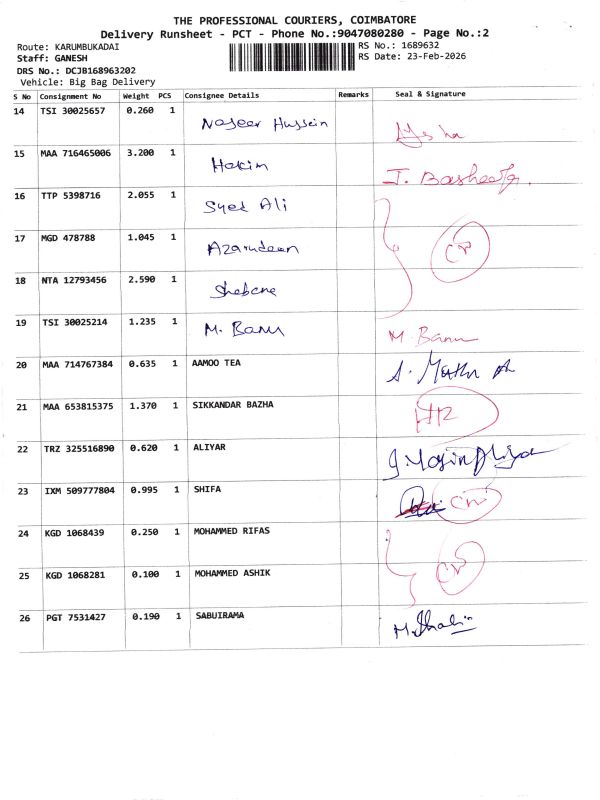 THE PROFESSIONAL COURIERS, COIMBATORE
Delivery Runsheet - PCT - Phone No.:9047080280 - Page No.:2
Route: KARUMBUKADAI RS No.: 1689632
Staff: GANESH RS Date: 23-Feb-2026
DRS No.: DCJB168963202
Vehicle: Big Bag Delivery
S No Consignment No Weight PCS Consignee Details Remarks Seal & Signature
14 TSI 30025657 0.260 1 Naseer Hussein
15 MAA 716465006 3.200 1 Hakim
16 TTP 5398716 2.055 1 Syed Ali
17 MGD 478788 1.045 1 Azarudeen
18 NTA 12793456 2.590 1
19 TSI 30025214 1.235 1 M. Banu M. Banu
20 MAA 714767384 0.635 1 AAMOO TEA
21 MAA 653815375 1.370 1 SIKKANDAR BAZHA
22 TRZ 325516890 0.620 1 ALIYAR
23 IXM 509777804 0.995 1 SHIFA
24 KGD 1068439 0.250 1 MOHAMMED RIFAS
25 KGD 1068281 0.100 1 MOHAMMED ASHIK
26 PGT 7531427 0.190 1 SABUIRAMA